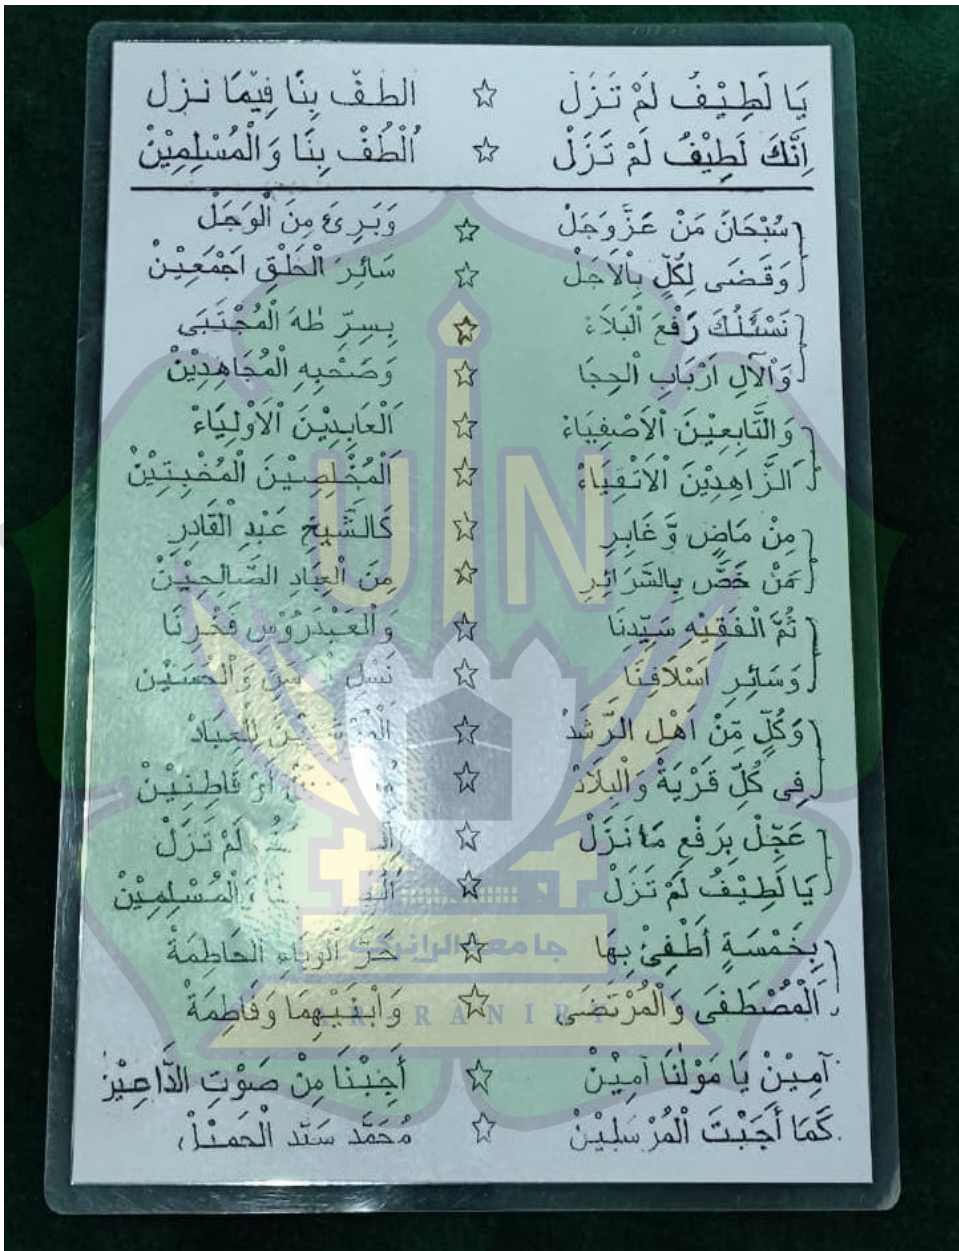 يَا لَطِيْفُ لَمْ تَزَلْ ☆ الطُفْ بِنَا فِيْمَا نزل
اِنَّكَ لَطِيْفُ لَمْ تَزَلْ ☆ اُلْطُفْ بِنَا وَالْمُسْلِمِيْنْ
سُبْحَانَ مَنْ عَزَّوَجَلْ ☆ وَبَرِئَ مِنَ الْوَجَلْ
وَقَضَى لِكُلٍّ بِالْاَجَلْ ☆ سَائِرَ الْخَلْقِ اَجْمَعِيْنْ
نَسْئَلُكَ رَفْعَ الْبَلَاءْ ☆ بِسِرِّ طٰهَ الْمُجْتَبَى
وَالْآلِ اَرْبَابِ الْحِجَا ☆ وَصَحْبِهِ الْمُجَاهِدِيْنْ
وَالتَّابِعِيْنَ الْاَصْفِيَاءْ ☆ اَلْعَابِدِيْنَ الْاَوْلِيَاءْ
اَلزَّاهِدِيْنَ الْاَتْقِيَاءْ ☆ اَلْمُخْلِصِيْنَ الْمُخْبِتِيْنْ
مِنْ مَاضٍ وَّغَابِرِ ☆ كَالشَّيْخِ عَبْدِ الْقَادِرِ
مَنْ خَصَّ بِالسَّرَائِرِ ☆ مِنَ الْعِبَادِ الصَّالِحِيْنْ
ثُمَّ الْفَقِيْهِ سَيِّدِنَا ☆ وَالْعَيْدَرُوْسِ فَخْرِنَا
وَسَائِرِ اَسْلَافِنَا ☆ نَسْلِ وَالْحُسَيْن
وَكُلٍّ مِّنْ اَهْلِ الرَّشَدْ ☆ لِلعِبَادْ
فِى كُلِّ قَرْيَةْ وَالْبِلَادْ ☆ اَوْ قَاطِنِيْنْ
عَجِّلْ بِرَفْعِ مَا نَزَلْ ☆ لَمْ تَزَلْ
يَا لَطِيْفُ لَمْ تَزَلْ ☆ وَالْمُسْلِمِيْنْ
بِخَمْسَةٍ أَطْفِئْ بِهَا ☆ حَرَّ الْوَبَاءِ الحَاطِمَةْ
اَلْمُصْطَفَى وَالْمُرْتَضَى ☆ وَابْنَيْهِمَا وَفَاطِمَةْ
آمِيْنْ يَا مَوْلٰنَا آمِيْنْ ☆ أَجِبْنَا مِنْ صَوْتِ الدَّاعِيْنْ
كَمَا أَجَبْتَ الْمُرْسَلِيْنْ ☆ مُحَمَّد سَيِّد الْحَمِيْل
UIN
جامعة الرانيري
AR-RANIRY